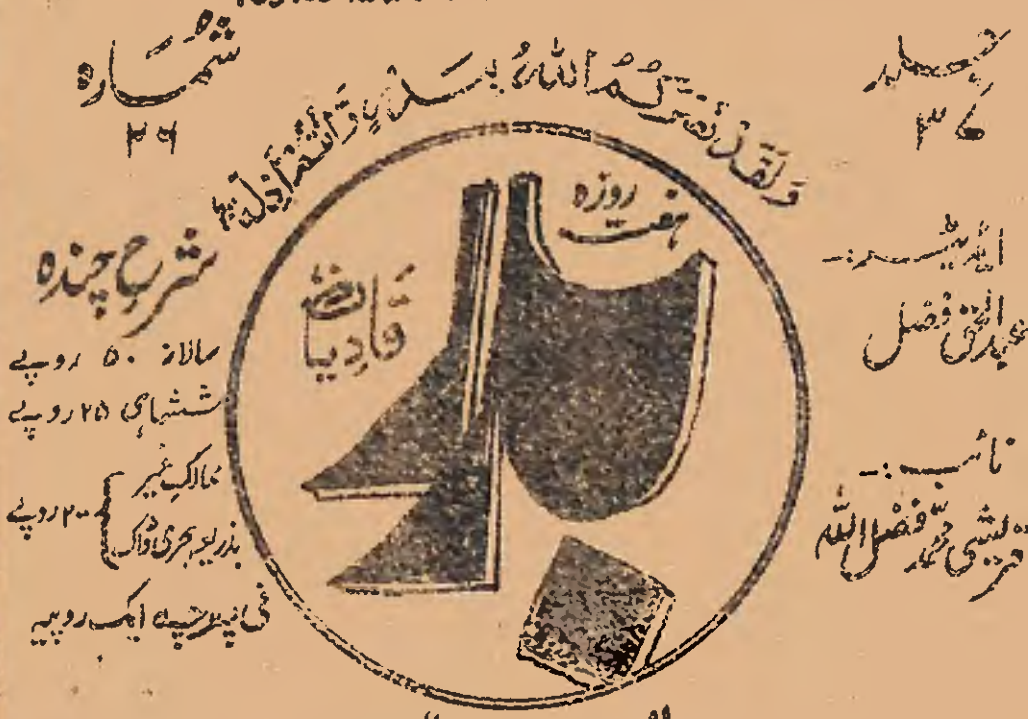 جلد
۳۷
شمارہ
۲۶
وَلَقَدْ نَصَرَكُمُ اللّٰهُ بِبَدْرٍ وَّاَنْتُمْ اَذِلَّةٌ
ہفت روزہ
بدر
قادیان
ایڈیٹر:-
عبدالحق فضل
نائب:-
قریشی محمد فضل اللہ
شرح چندہ
سالانہ ۵۰ روپے
ششماہی ۲۵ روپے
ممالک غیر
بذریعہ بحری ڈاک
۲۰۰ روپے
فی پرچہ ایک روپیہ